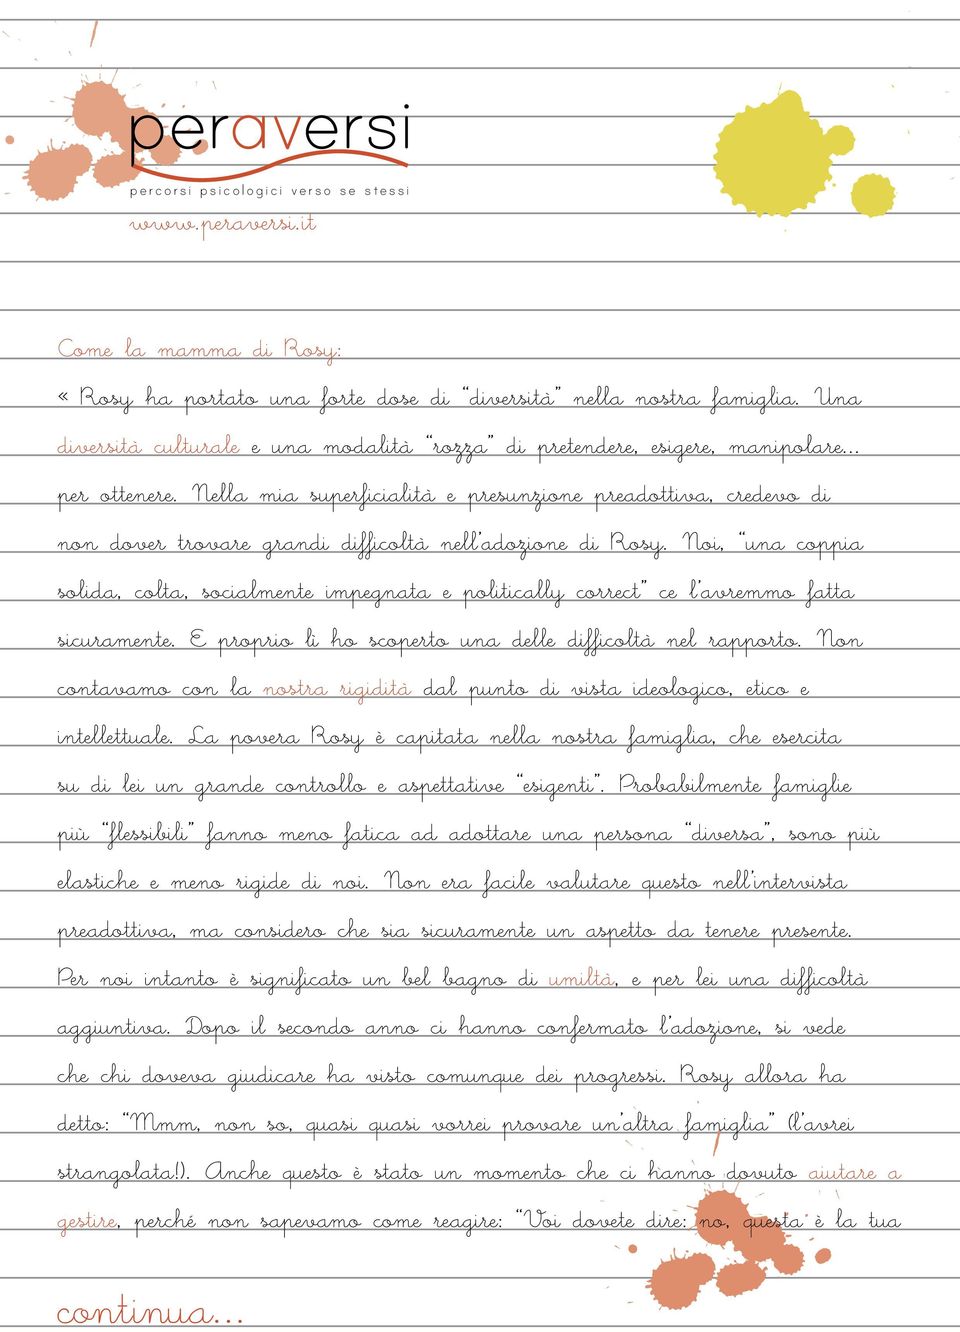 peraversi
percorsi psicologici verso se stessi
www.peraversi.it
Come la mamma di Rosy:
« Rosy ha portato una forte dose di “diversità” nella nostra famiglia. Una
diversità culturale e una modalità “rozza” di pretendere, esigere, manipolare...
per ottenere. Nella mia superficialità e presunzione preadottiva, credevo di
non dover trovare grandi difficoltà nell’adozione di Rosy. Noi, “una coppia
solida, colta, socialmente impegnata e politically correct” ce l’avremmo fatta
sicuramente. E proprio lì ho scoperto una delle difficoltà nel rapporto. Non
contavamo con la nostra rigidità dal punto di vista ideologico, etico e
intellettuale. La povera Rosy è capitata nella nostra famiglia, che esercita
su di lei un grande controllo e aspettative “esigenti”. Probabilmente famiglie
più “flessibili” fanno meno fatica ad adottare una persona “diversa”, sono più
elastiche e meno rigide di noi. Non era facile valutare questo nell’intervista
preadottiva, ma considero che sia sicuramente un aspetto da tenere presente.
Per noi intanto è significato un bel bagno di umiltà, e per lei una difficoltà
aggiuntiva. Dopo il secondo anno ci hanno confermato l’adozione, si vede
che chi doveva giudicare ha visto comunque dei progressi. Rosy allora ha
detto: “Mmm, non so, quasi quasi vorrei provare un’altra famiglia” (l’avrei
strangolata!). Anche questo è stato un momento che ci hanno dovuto aiutare a
gestire, perché non sapevamo come reagire: “Voi dovete dire: no, questa è la tua
continua...